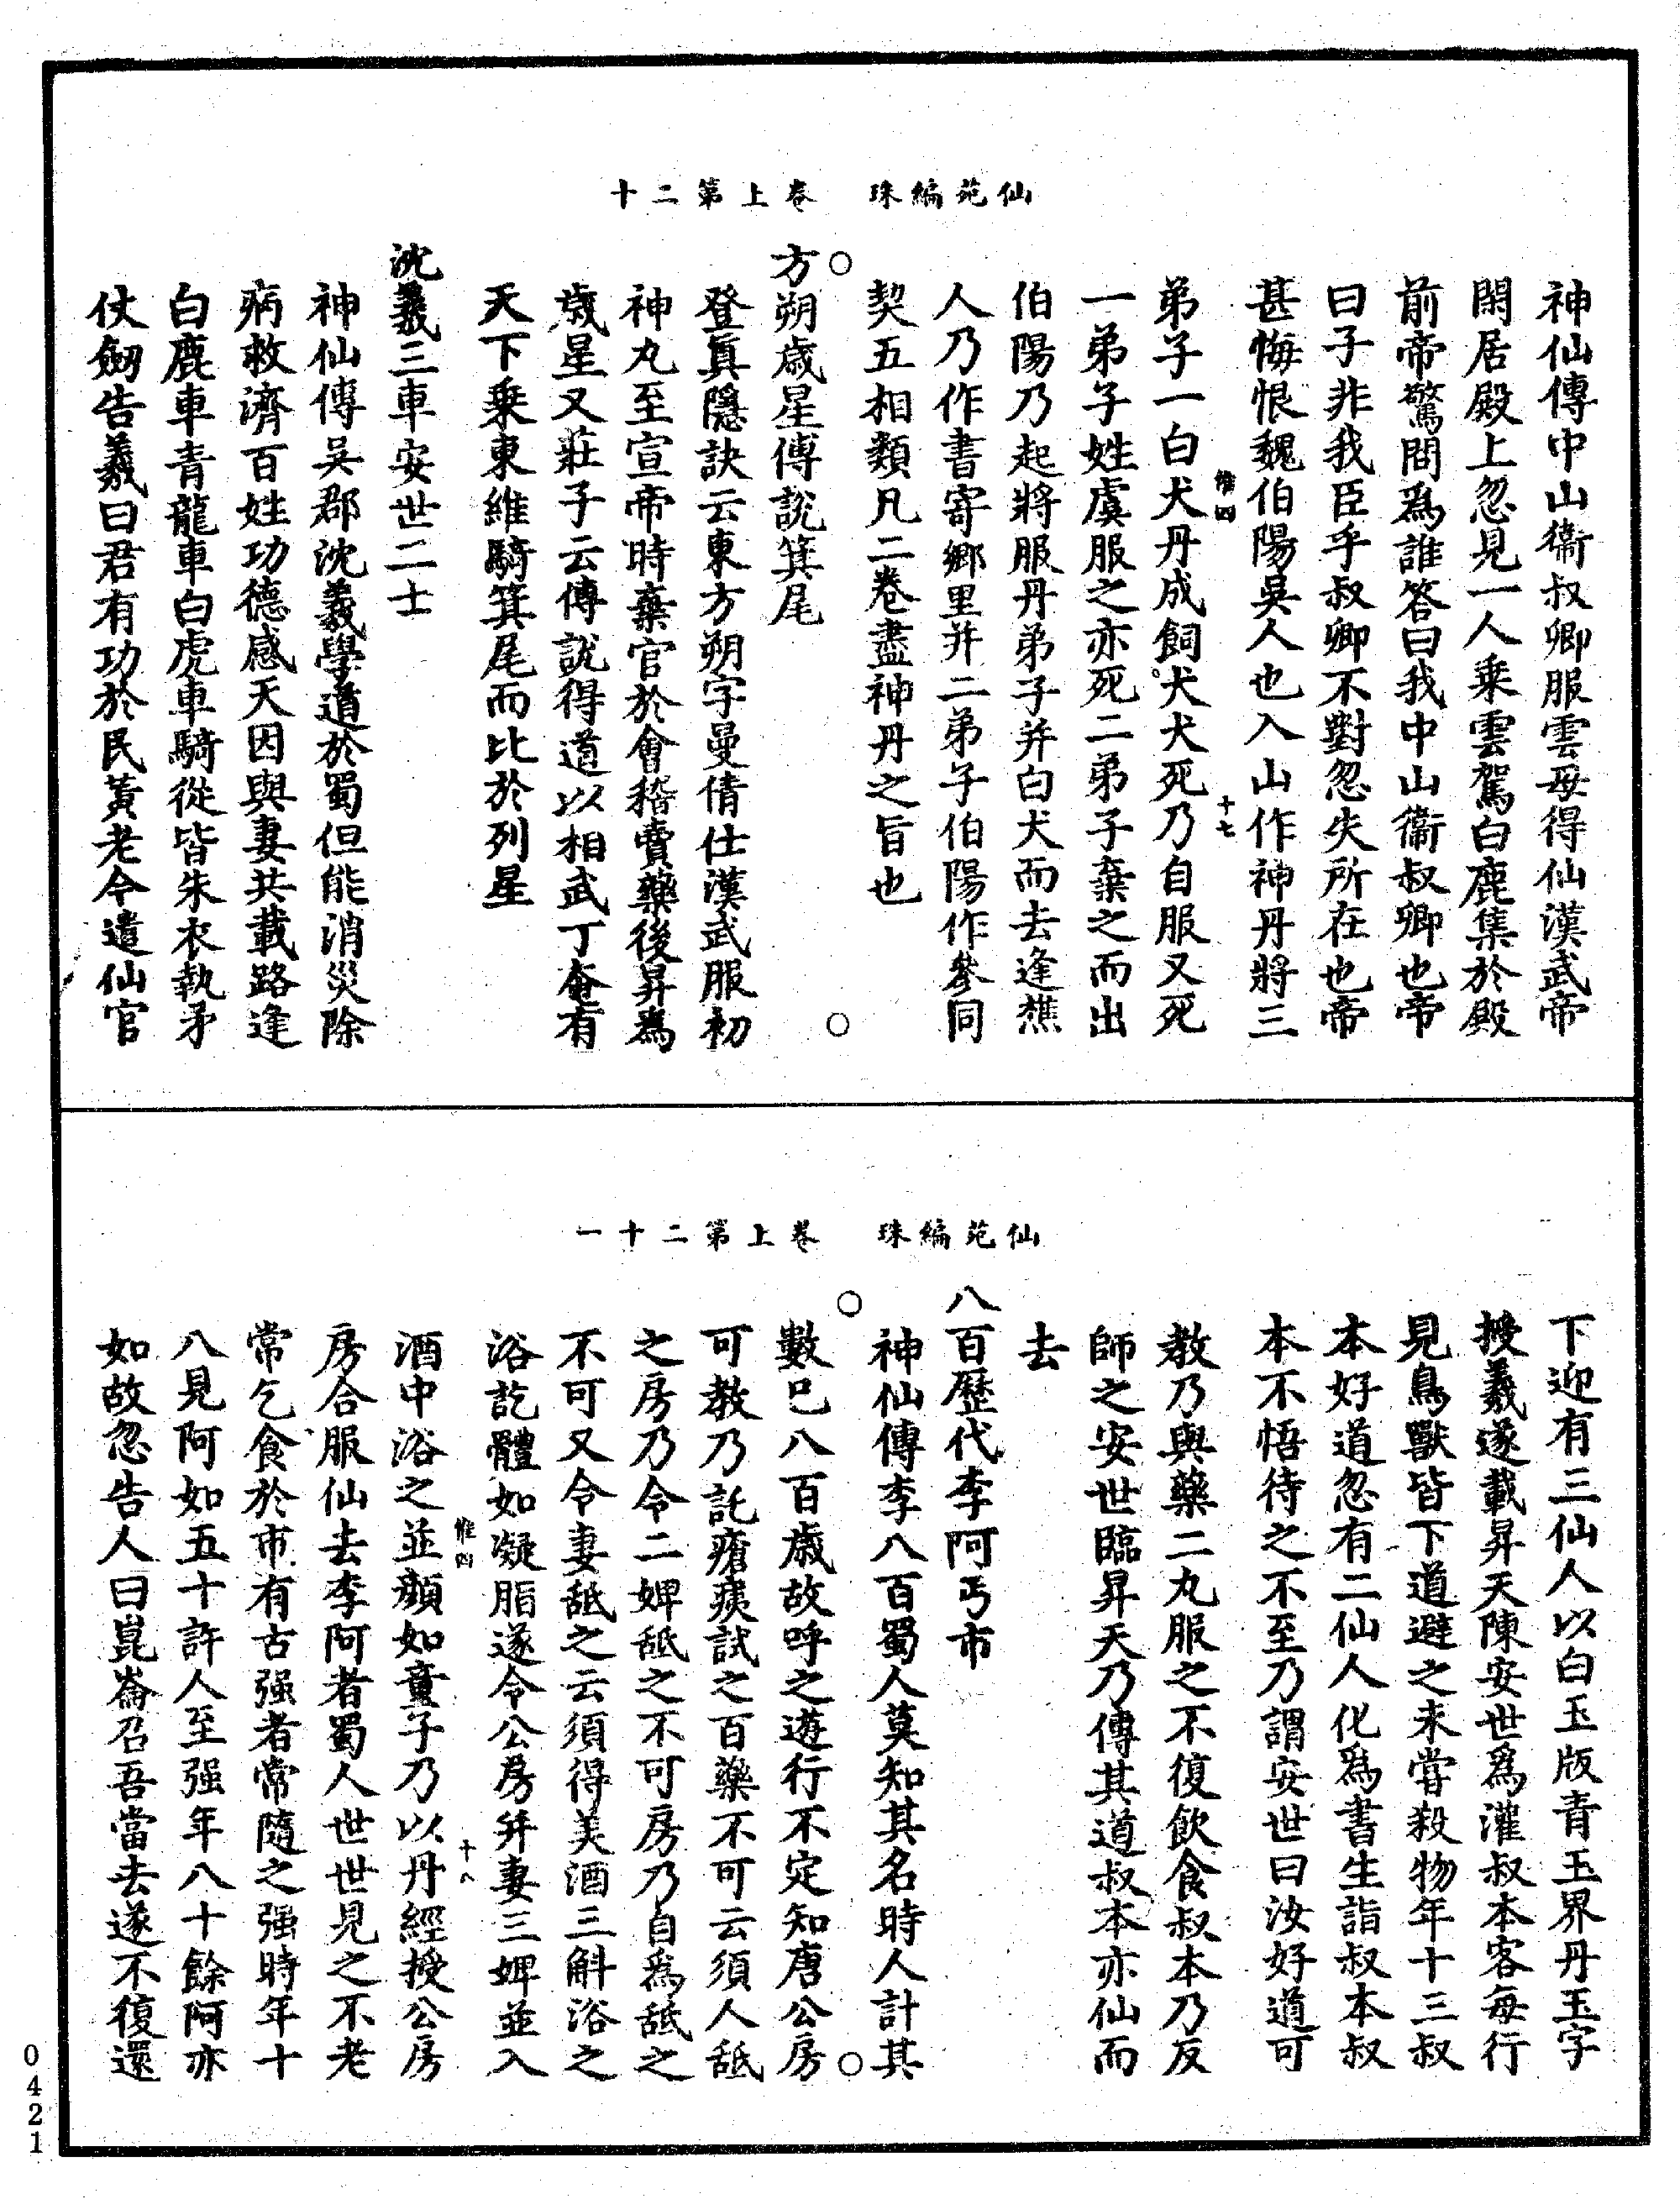 仙苑編珠　卷上第二十
神仙傳中山衞叔卿服雲母得仙漢武帝
閑居殿上忽見一人乗雲駕白鹿集於殿
前帝驚問爲誰答曰我中山衞叔卿也帝
曰子非我臣乎叔卿不對忽失所在也帝
甚悔恨魏伯陽吳人也入山作神丹將三
惟四　十七
弟子一白犬丹成飼犬犬死乃自服又死
一弟子姓虞服之亦死二弟子棄之而出
伯陽乃起將服丹弟子并白犬而去逢樵
人乃作書寄鄉里并二弟子伯陽作參同
契五相類凡二卷盡神丹之旨也
方朔歲星傅說箕尾
登眞隱訣云東方朔字曼倩仕漢武服初
神丸至宣帝時棄官於會稽賣藥後昇爲
歲星又莊子云傅說得道以相武丁奄有
天下乗東維騎箕尾而比於列星
沈羲三車安世二士
神仙傳吳郡沈羲學道於蜀但能消災除
病救濟百姓功德感天因與妻共載路逢
白鹿車青龍車白虎車騎從皆朱衣執矛
仗劒告羲曰君有功於民黃老今遣仙官
仙苑編珠　卷上第二十一
下迎有三仙人以白玉版青玉界丹玉字
授羲遂載昇天陳安世爲灌叔本客每行
見鳥獸皆下道避之未甞殺物年十三叔
本好道忽有二仙人化爲書生詣叔本叔
本不悟待之不至乃謂安世曰汝好道可
教乃與藥二丸服之不復飲食叔本乃反
師之安世臨昇天乃傳其道叔本亦仙而
去
八百歷代李阿丐市
神仙傳李八百蜀人莫知其名時人計其
數已八百歲故呼之遊行不定知唐公房
可教乃託瘡痍試之百藥不可云須人舐
之房乃令二婢舐之不可房乃自爲舐之
不可又令妻舐之云須得美酒三斛浴之
浴訖體如凝脂遂令公房幷妻三婢並入
惟四　十八
酒中浴之並顏如童子乃以丹經授公房
房合服仙去李阿者蜀人世世見之不老
常乞食於市有古强者常隨之强時年十
八見阿如五十許人至强年八十餘阿亦
如故忽告人曰崑崙召吾當去遂不復還
0421